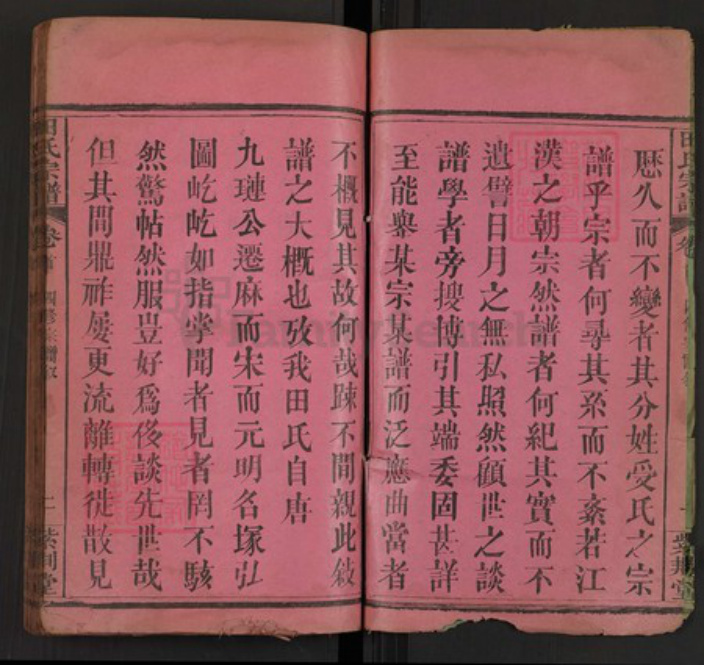 歷久而不變者其分姓受氏之宗
譜乎宗者何尋其系而不紊若江
漢之朝宗然譜者何紀其實而不
遺譬日月之無私照然顧世之談
譜學者旁搜博引其端委固甚詳
至能舉某宗某譜而泛應曲當者
不概見其故何哉踈不間親此敍
譜之大概也攷我田氏自唐
九璉公遷麻而宋而元明名塚弘
圖屹屹如指掌聞者見者罔不駭
然驚帖然服豈好爲後談先世哉
但其間鼎祚屢更流離轉徙散見
田氏宗譜
卷首
二
紫荆堂
FamilySearch